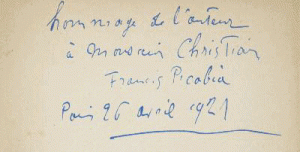 hommage de l'auteur
à Monsieur Christian
Francis Picabia
Paris 26 avril 1921